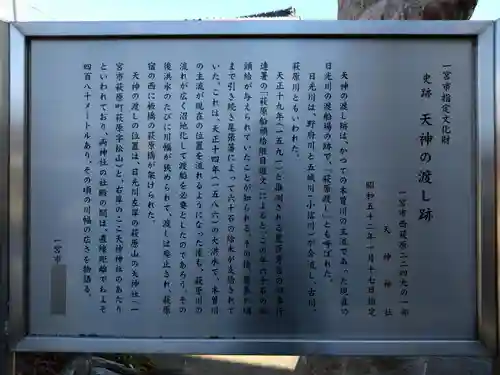 一宮市指定文化財
史跡 天神の渡し跡
一宮市西萩原二二四九の一部
天神神社
昭和五十二年一月十七日指定
天神の渡し跡は、かつての木曽川の主流であった現在の
日光川の渡船場の跡で、「萩原渡し」とも呼ばれた。
日光川は、野府川と五城川(小信川)が合流し、古川、
萩原川ともいわれた。
天正十九年(一五九一)と推測される
まで引き続き尾張藩によって六十石の給米が支給されて
いた。これは、天正十四年(一五八六)の大洪水で、木曽川
の主流が現在の位置を流れるようになった後も、萩原川の
流れが広く沼地化して渡船を必要としたのであろう。その
後洪水のたびに川幅が狭められて、渡しは廃止され、萩原
宿の西に板橋の萩原橋が架けられた。
天神の渡しの位置は、日光川左岸の萩原山の天神社(一
宮市萩原町萩原字松山)と、右岸のここ天神神社のあたり
といわれており、両神社の社殿の間は、直線距離でおよそ
四百八十メートルあり、その頃の川幅の広さを物語る。
一宮市